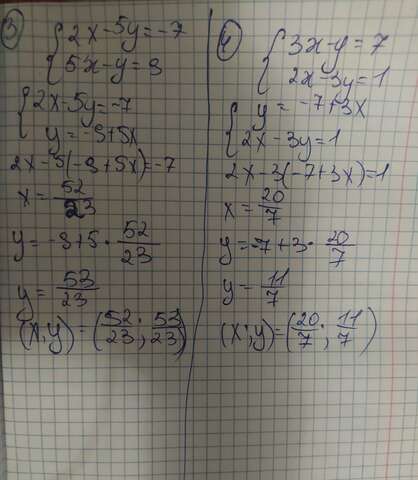 3
2x-5y=-7
5x-y=9
2x-5y=-7
y=-9+5x
2x-5(-9+5x)=-7
x=52/23
y=-9+5·52/23
y=53/23
(x;y)=(52/23; 53/23)
4
3x-y=7
2x-3y=1
y=-7+3x
2x-3y=1
2x-3(-7+3x)=1
x=20/7
y=-7+3·20/7
y=11/7
(x;y)=(20/7; 11/7)